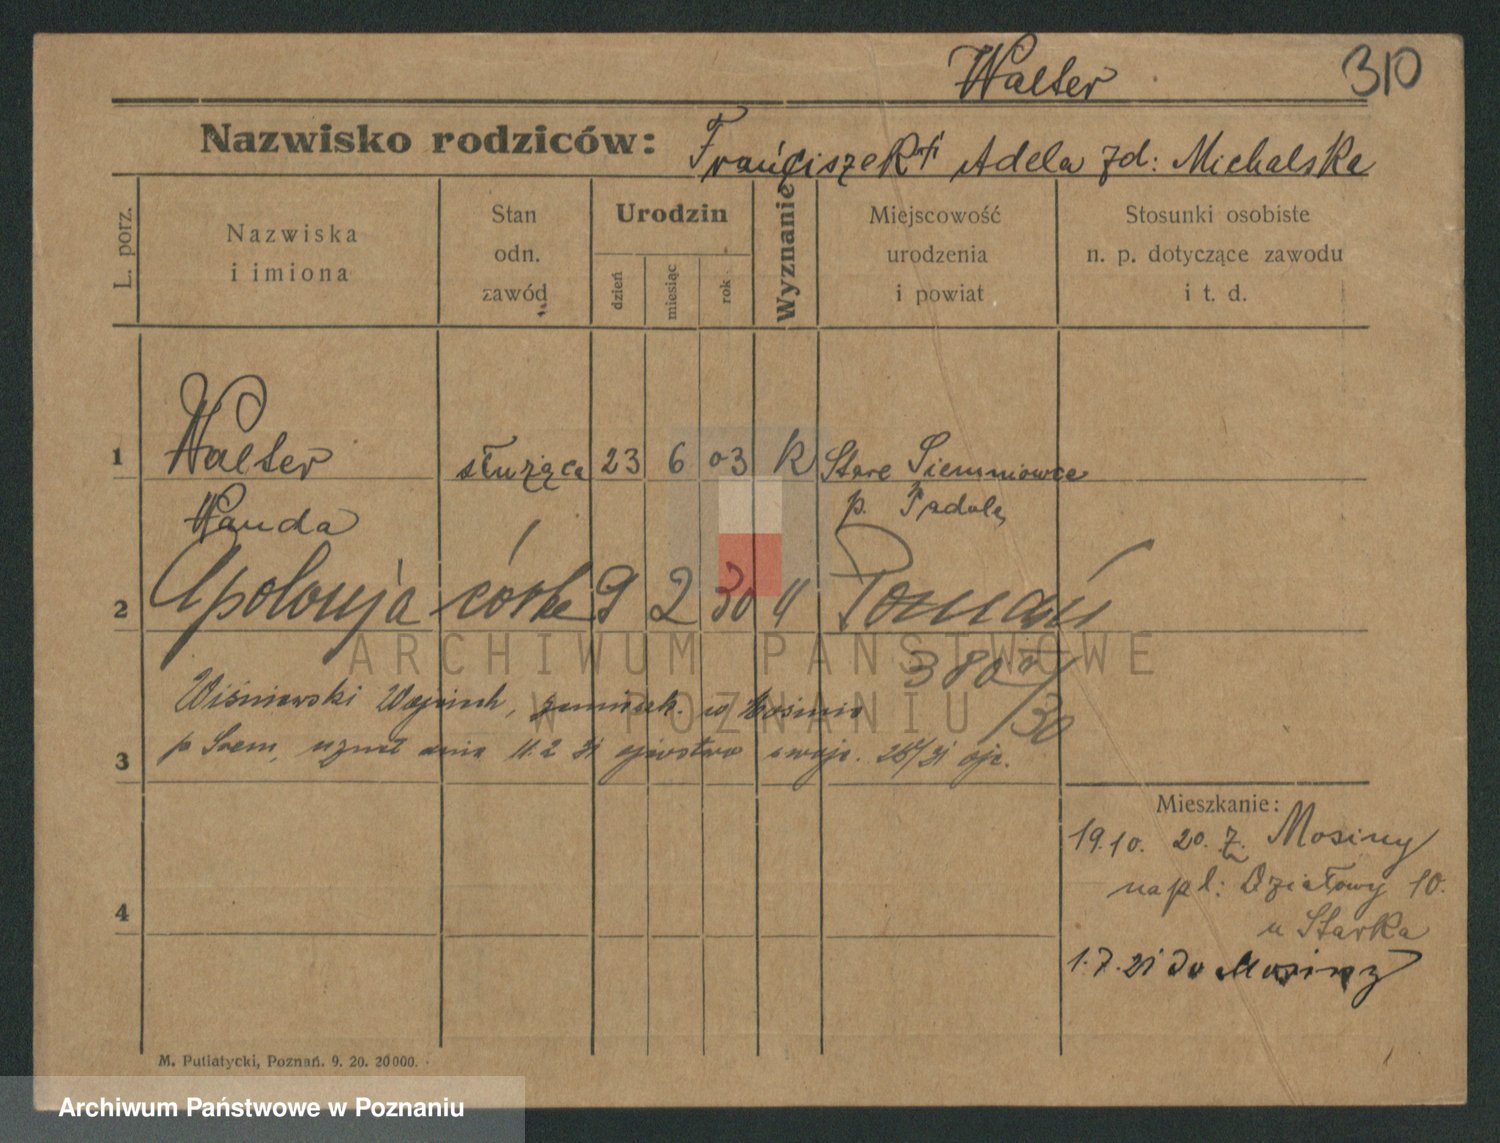 Walter 310
Nazwisko rodziców: Franciszek Adela zd: Michalska
L. porz.
Nazwiska
i imiona
Stan
odn.
zawód
Urodzin
dzień
miesiąc
rok
Wyznanie
Miejscowość
urodzenia
i powiat
Stosunki osobiste
n. p. dotyczące zawodu
i t. d.
1 Walter służąca 23 6 03 K Stare
Wanda p.
2 Apolonja córka 9 2 30 " Poznań
380
/30
Wiśniewski w
3 11.2 31 ojcostwo 31
Mieszkanie:
19.10. 20. z Mosiny
na pl: Działowy 10.
u Starka
4
1.7.21 do Mosiny
M. Putiatycki, Poznań. 9. 20. 20000.
ARCHIWUM PAŃSTWOWE
W POZNANIU
Archiwum Państwowe w Poznaniu